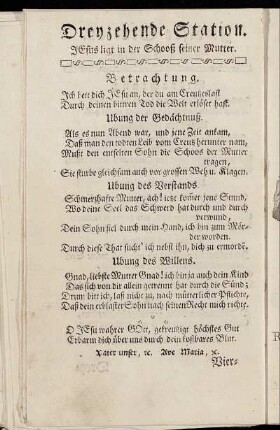 Dreyzehende Station.
JEsus ligt in der Schooß seiner Mutter.
Betrachtung.
Ich bett dich JEsu an, der du am Creutzeslast
Durch deinen bittren Tod die Welt erlöset hast.
Ubung der Gedächtnuß.
Als es nun Abend war, und jene Zeit ankam,
Daß man den todten Leib vom Creutz herunter nam,
Mußt den entseelten Sohn die Schoos der Mutter
tragen,
Sie sturbe gleichsam auch vor grossen Weh u. Klagen.
Ubung des Verstands.
Schmertzhafte Mutter, ach! jetzt kom̃et jene Stund,
Wo deine Seel das Schwerd hat durch und durch
verwund,
Dein Sohn fiel durch mein Hand, ich bin zum Mör-
der worden.
Durch diese That sucht' ich nebst ihn, dich zu ermordẽ.
Ubung des Willens.
Gnad, liebste Mutter Gnad! ich bin ja auch dein Kind
Das sich von dir allein getrennt hat durch die Sünd;
Drum bitt ich, laß nicht zu, nach mütterlicher Pflichte,
Daß dein erblaßter Sohn nach seinen Recht mich richte.
O JEsu wahrer GOtt, gekreutzigt höchstes Gut
Erbarm dich über uns durch dein kostbares Blut.
Vater unser, ꝛc. Ave Maria, ꝛc.
Vier-